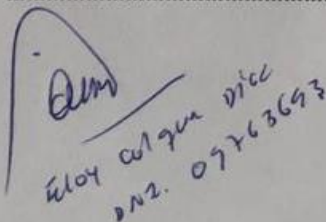 Eloy Colgua Díaz
DNI. 09763693